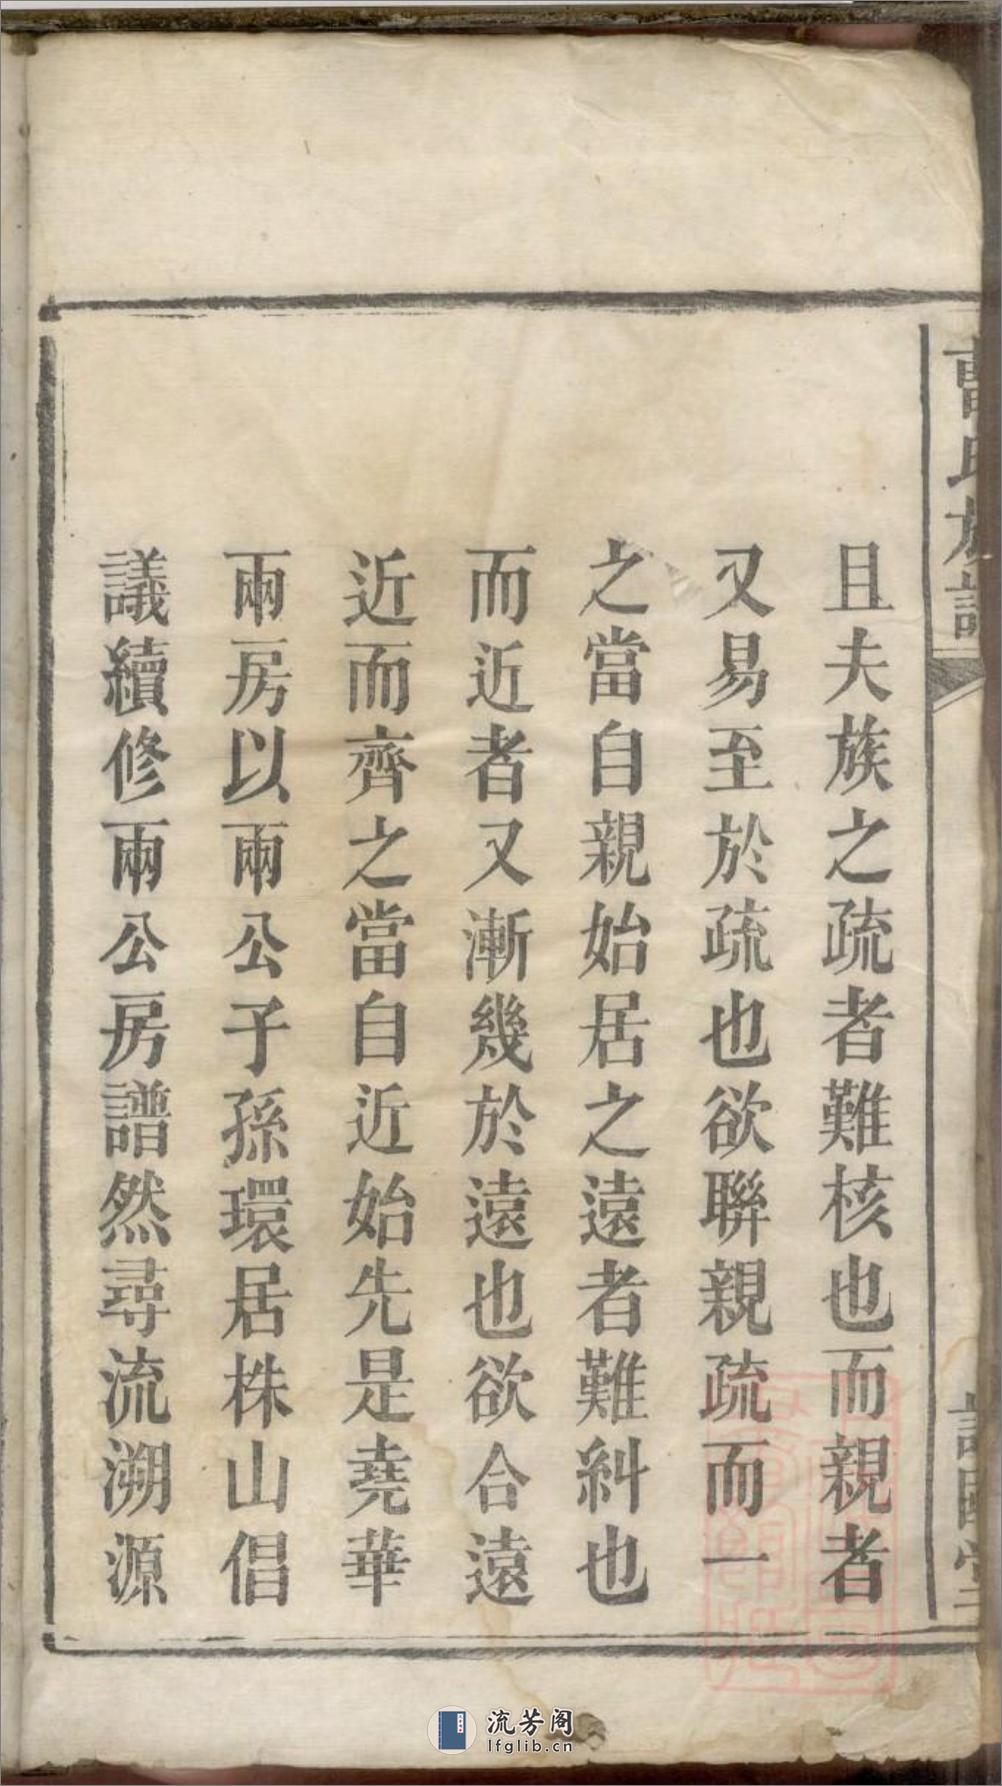 曹氏族譜
且夫族之疏者難核也而親者
又易至於疏也欲聯親疏而一
之當自親始居之遠者難糾也
而近者又漸幾於遠也欲合遠
近而齊之當自近始先是堯華
兩房以兩公子孫環居株山倡
議續修兩公房譜然尋流溯源
流芳阁
lfglib.cn